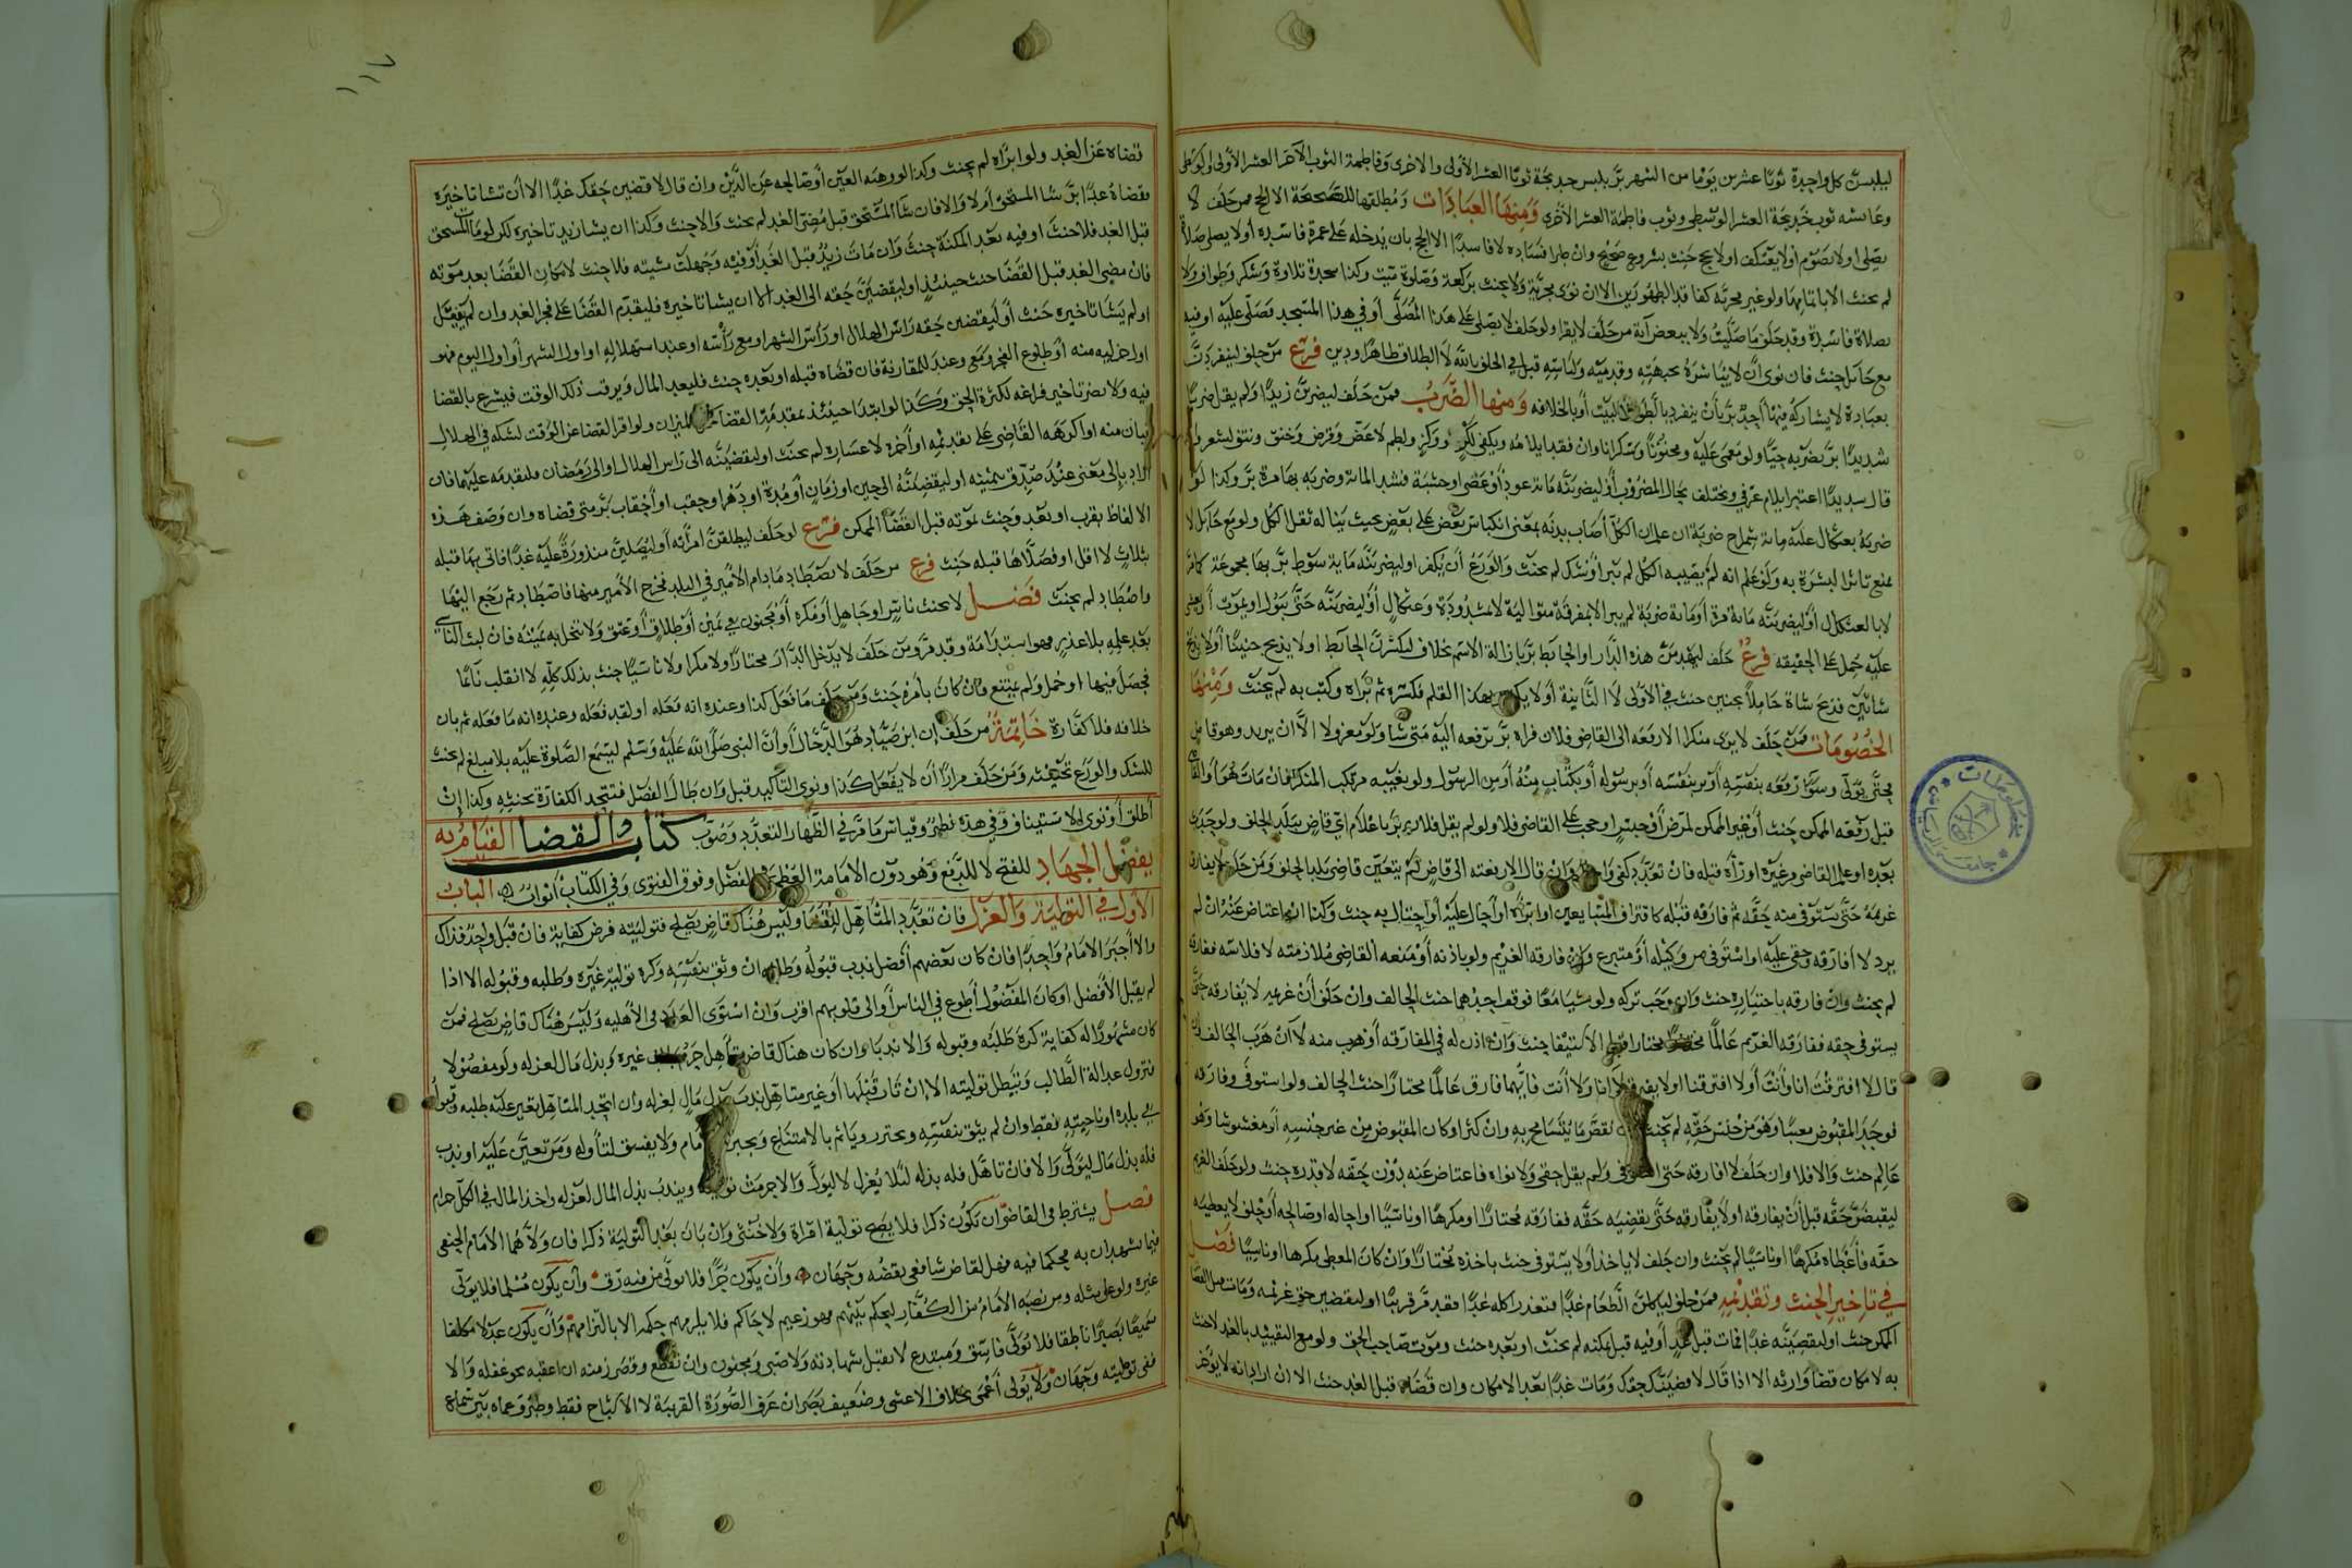 ليلبسن كل واحدة ثوبا عشرين يوما من الشهر بر بلبس خديجة ثوبا العشر الأولى والاخرى وفاطمة الثوب الآخر العشر الأولى والوسطى
وعائشة ثوب خديجة العشر الوسطى وثوب فاطمة العشر الأخرى ومنها العبادات ومطلقها للصحيحة الا الحج فمن حلف لا
يصلى اولا يصوم اولا يعتكف اولا يحج حنث بشروع صحيح وان طرا فساده لا فاسدا الا الحج بان يدخله على عمرة فاسدة أولا يصلى صلاة
لم يحنث الا باتمامها ولو غير مجزئة كفاقد الطهورين الا ان نوى مجزية ولا يحنث بركعة وصلوة ميت وكذا سجدة تلاوة وشكر وطواف ولا
بصلاة فاسدة وقد حلف ما صليت ولا ببعض آية من حلف لا يقرا ولو حلف لا يصلى على هذا المصلى أو في هذا المسجد فصلى عليه او فيه
مع حائل حنث فان نوى أن لا يباشره بجبهته وقدميه وثيابه قبل في الحلف بالله لا الطلاق ظاهرا ودين فرع من حلف لينفردن
بعبادة لا يشاركه فيها أحد بر بأن ينفرد بالطواف بالبيت أو بالخلافه ومنها الضرب فمن حلف ليضربن زيدا ولم يقل ضربا
شديدا بر بضربه حيا ولو مغمى عليه ومجنونا وسكرانا وان فقد ايلامه ويكفى لكم ووكز ولطم لا عض وقرص وخنق ونتف شعر وان
قال شديدا اعتبر ايلام عرفي ويختلف بحال المضروب أو ليضربنه مائة عود أو عصى او خشبة فشد المائة وضربه بها مرة بر وكذا لو
ضربه بعثكال عليه مائة شمراخ ضربة ان علم ان الكل أصاب بدنه بمعنى انكباس بعض على بعض بحيث يناله ثقل الكل ولو مع حائل لا
يمنع تاثر البشرة به ولو علم انه لم يصيبه الكل لم يبر أو شك لم يحنث والورع أن يكفر اوليضربنه مائة سوط بر بها مجموعة كامر
لا بالعثكال أو ليضربنه مائة مرة أو مائة ضربة لم يبر الا بمفرقة متوالية لا مشدودة وعثكال أو ليضربنه حتى يبول او يموت أو يغشى
عليه حمل على الحقيقه فرع حلف ليهدمن هذه الدار او الحائط بر بازالة الاسم بخلاف ليكسرن الحائط اولا يذبح جنينا أولا يذبح
شاتين فذبح شاة حاملا بجنين حنث في الاولى لا الثانية أولا يكتب بهذا القلم فكسره ثم براه وكتب به لم يحنث ومنها
الخصومات فمن حلف لا يرى منكرا الا رفعه الى القاضى فلان فراه بر برفعه اليه متى شا ولو معزولا الا ان يريد وهو قاض
حتى يولى وسوا رفعه بنفسه أو برسوله أو بكتاب منه أو من الرسول ولو بغيبه مرتكب المنكر فان مات هو أو القاضى
قبل رفعه الممكن حنث أو غير الممكن لمرض أو حبس او حجب على القاضى فلا ولو لم يقل فلان بر باعلام اي قاض ببلد الحلف ولو جدد
بعده او علم القاضى وغيره او رآه قبله فان تعدد كفى واحد وان قال الا رفعته الى قاض لم يتعين قاضى بلد الحلف ومن حلف لا يفارق
غريمه حتى يستوفى منه حقه ثم فارقه قبله كافتراق المتبايعين او ابراه او أحال عليه أو احتال به حنث وكذا ان اعتاض عنه ان لم
يرد لا أفارقه وحقى عليه او استوفى من وكيله أو متبرع وان فارقه الغريم ولو باذنه أو منعه القاضى ملازمته لا فلاسه ففارقه
لم يحنث وان فارقه باختياره حنث وان وجب تركه ولو مشيا معا فوقف احدهما حنث الحالف وان حلف أن غريمه لا يفارقه حتى
يستوفى حقه ففارقه الغريم عالما مختارا قبل الاستيفا حنث وان اذن له في المفارقه أو هرب منه لا ان هرب الحالف وان
قال لا افترقت انا وأنت أولا افترقنا اولا يفترق لا انا ولا أنت فايهما فارق عالما مختارا حنث الحالف ولو استوفى وفارقه
فوجد المقبوض معيبا وهو من جنس حقه لم يحنث نقص ما يتسامح به وان كثر او كان المقبوض من غير جنسه او مغشوشا وهو
عالم حنث والا فلا وان حلف لا افارقه حتى استوفى ولم يقل حقى ولا نواه فاعتاض عنه بدون حقه لا قدره حنث ولو حلف الغريم
ليقبضن حقه قبل أن يفارقه أولا يفارقه حتى يقضيه حقه ففارقه مختارا او مكرها او ناسيا او احاله او صالحه أو حلف لا يعطيه
حقه فأعطاه مكرها او ناسيا لم يحنث وان حلف لا ياخذ أولا يستوفى حنث باخذه مختارا وان كان المعطى مكرها او ناسيا فصل
في تاخير الحنث وتقديمه فمن حلف لياكلن الطعام غدا فتعذر اكله غدا فقد مر قريبا او ليقضين حق غريمه ومات قبل القضا
الممكن حنث او ليقضينه غدا فمات قبل غد أو فيه قبل تمكنه لم يحنث او بعده حنث وموت صاحب الحق ولو مع التقييد بالغد لا حنث
به لامكان قضا وارثه الا اذا قال لاقضينك حقك ومات غدا بعد الامكان وان قضاه قبل الغد حنث الا ان اراد انه لا يؤخر
١١٧
قضاه عن الغد ولو ابراه لم يحنث وكذا لو وهبه العين أو صالحه عن الدين وان قال لاقضين حقك غدا الا أن تشا تاخيره
بقضاه غدا بر شا المستحق ام لا والا فان شا المستحق قبل مضى الغد لم يحنث والا حنث وكذا ان يشا زيد تاخيره لكن لو مات المستحق
قبل الغد فلا حنث او فيه بعد المكنة حنث وان مات زيد قبل الغد أو فيه وجهلت مشيته فلا حنث لامكان القضا بعد موته
فان مضى الغد قبل القضا حنث حينئذ او ليقضين حقه الى الغد الا ان يشا تاخيره فليقدم القضا على فجر الغد وان لم يفعل
اولم يشا تاخيره حنث أو ليقضين حقه راس الهلال او رأس الشهر او مع رأسه او عند استهلاله او اول الشهر أو اول اليوم فهو
اول جز ليله منه أو طلوع الفجر ومع وعند للمقارنة فان قضاه قبله او بعده حنث فليعد المال ويرقب ذلك الوقت فيشرع بالقضا
فيه ولا يضر تاخير فراغه لكثرة الحق وكذا لو ابتدا حينئذ بمقدمة القضا كحمل الميزان ولو اقر القضا عن الوقت لشكه في الهلال
فبان منه او اكرهه القاضى على تقديمه او أخره لاعساره لم يحنث او ليقضينه الى راس الهلال او الى رمضان فليقدمه عليهما فان
اراد بالى معنى عند صدق بيمينه او ليقضينه الى حين او زمان أو مدة او دهر او حقب او أحقاب بر متى قضاه وان وصف هذه
الالفاظ بقرب او بعد وحنث بموته قبل القضا الممكن فرع لو حلف ليطلقن امرأته أو ليصلين منذورة عليه غدا فاتى بهما قبله
بثلاث لا اقل او فصلاها قبله حنث فرع من حلف لا يصطاد ما دام الأمير في البلد فخرج الأمير منها فاصطاد ثم رجع اليها
واصطاد لم يحنث فصل لا يحنث ناس او جاهل أو مكره أو مجنون في يمين أو طلاق أو عتق ولا تنحل به يمينه فان لبث الناسى
بعد علمه بلا عذر فهو استدامة وقد مر ومن حلف لا يدخل الدار مختارا ولا مكرا ولا ناسيا حنث بذلك كله لا انقلب نائما
فحصل فيها او حمل ولم يمتنع فان كان بأمره حنث ومن حلف ما فعل كذا وعنده انه فعله او لقد فعله وعنده انه ما فعله ثم بان
خلافه فلا كفارة خاتمة من حلف إن ابن صياد هو الدجال أو أن النبى صلى الله عليه وسلم ليسمع الصلوة عليه بلا مبلغ لم يحنث
للشك والورع تحنيثه ومن حلف مرارا أن لا يفعل كذا ونوى التاكيد قبل وان طال الفصل فتتحد الكفارة بحنثه وكذا إن
أطلق أو نوى الاستيناف وفي هذه نظر وقياس ما مر في الظهار التعدد وصوب كتاب القضا القيام به
يفضل الجهاد للفتح لا للدفع وهو دون الامامة العظمى الفضل وفوق الفتوى وفى الكتاب أبواب الباب
الأول في التولية والعزل فان تعدد المتأهل للقضا وليس هناك قاض يصلح فتوليته فرض كفاية فان قبل واحد فذاك
والا أجبر الامام واحدا فان كان بعضهم أفضل ندب قبوله وطلبه ان وثق بنفسه وكره تولية غيره وطلبه وقبوله الا اذا
لم يقبل الأفضل او كان المفضول أطوع في الناس أو الى قلوبهم اقرب وان استوى العدد فى الأهليه وليس هناك قاض يصلح فمن
كان مشهورا له كفاية كره طلبه وقبوله والا ندبا وان كان هناك قاض متأهل حرم غيره وبذل مال لعزله ولو مفضولا
فتزول عدالة الطالب وتبطل توليته الا ان تاب قبلها أو غير متأهل ندب بذل مال لعزله وان اتحد المتأهل تعين عليه طلبه وقبوله
في بلده او ناحيته فقط وان لم يثق بنفسه ويحترز ويأثم بالامتناع ويجبره الامام ولا يفسق لتأوله ومن تعين عليه او ندب
فله بذل مال ليولى والا فان تأهل فله بذله لئلا يعزل لا ليولى والا حرمت توليته ويندب بذل المال لعزله واخذ المال في الكل حرام
فصل يشترط فى القاضى ان يكون ذكرا فلا يصح تولية امرأة ولا خنثى وان بان بعد التولية ذكرا فان ولاهما الامام الحنفى
فيما يشهدان به فحكما فيه فهل لقاض شافعى نقضه وجهان وأن يكون حرا فلا يولى من فيه رق وأن يكون مسلما فلا يولى
غيره ولو على مثله ومن نصبه الامام من الكفار ليحكم بينهم فهو زعيم لا حاكم فلا يلزمهم حكمه الا بالتزامهم وأن يكون عدلا مكلفا
سميعا بصيرا ناطقا فلا تولى فاسق ومبتدع لا تقبل شهادته ولا صبى ومجنون وان تقطع وقصر زمنه ان اعقبه نحو غفله والا
ففى توليته وجهان ولا يولى أعمى بخلاف الاعشى وضعيف بصر ان عرف الصورة القريبة لا الاشباح فقط وطرو عماه بين سماع